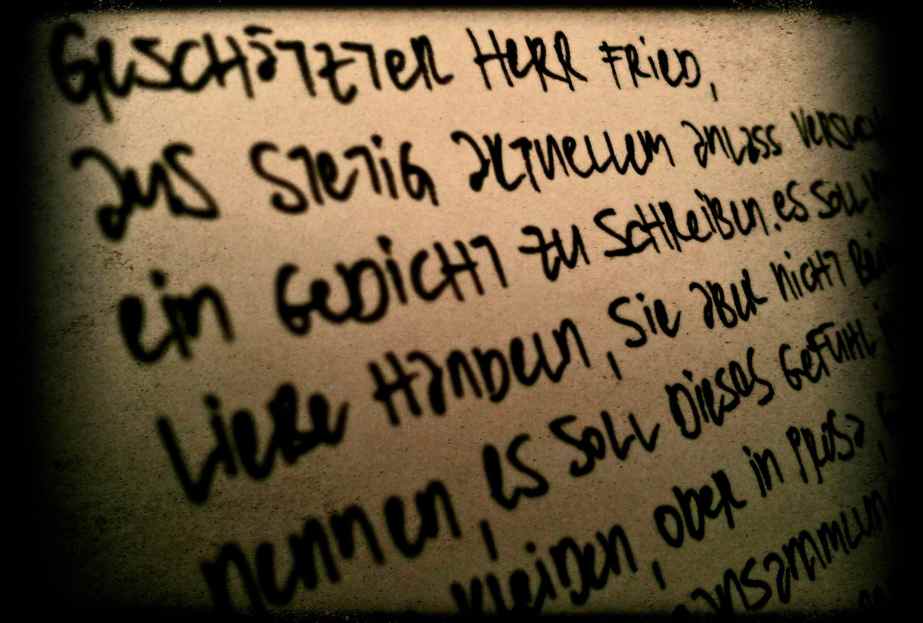 Geschätzter Herr Fried,
aus stetig aktuellem anlass
ein Gedicht zu schreiben. es soll
Liebe Handeln, sie aber nicht
nennen, es soll dieses Gefühl
kleiden, oder in Prosa,